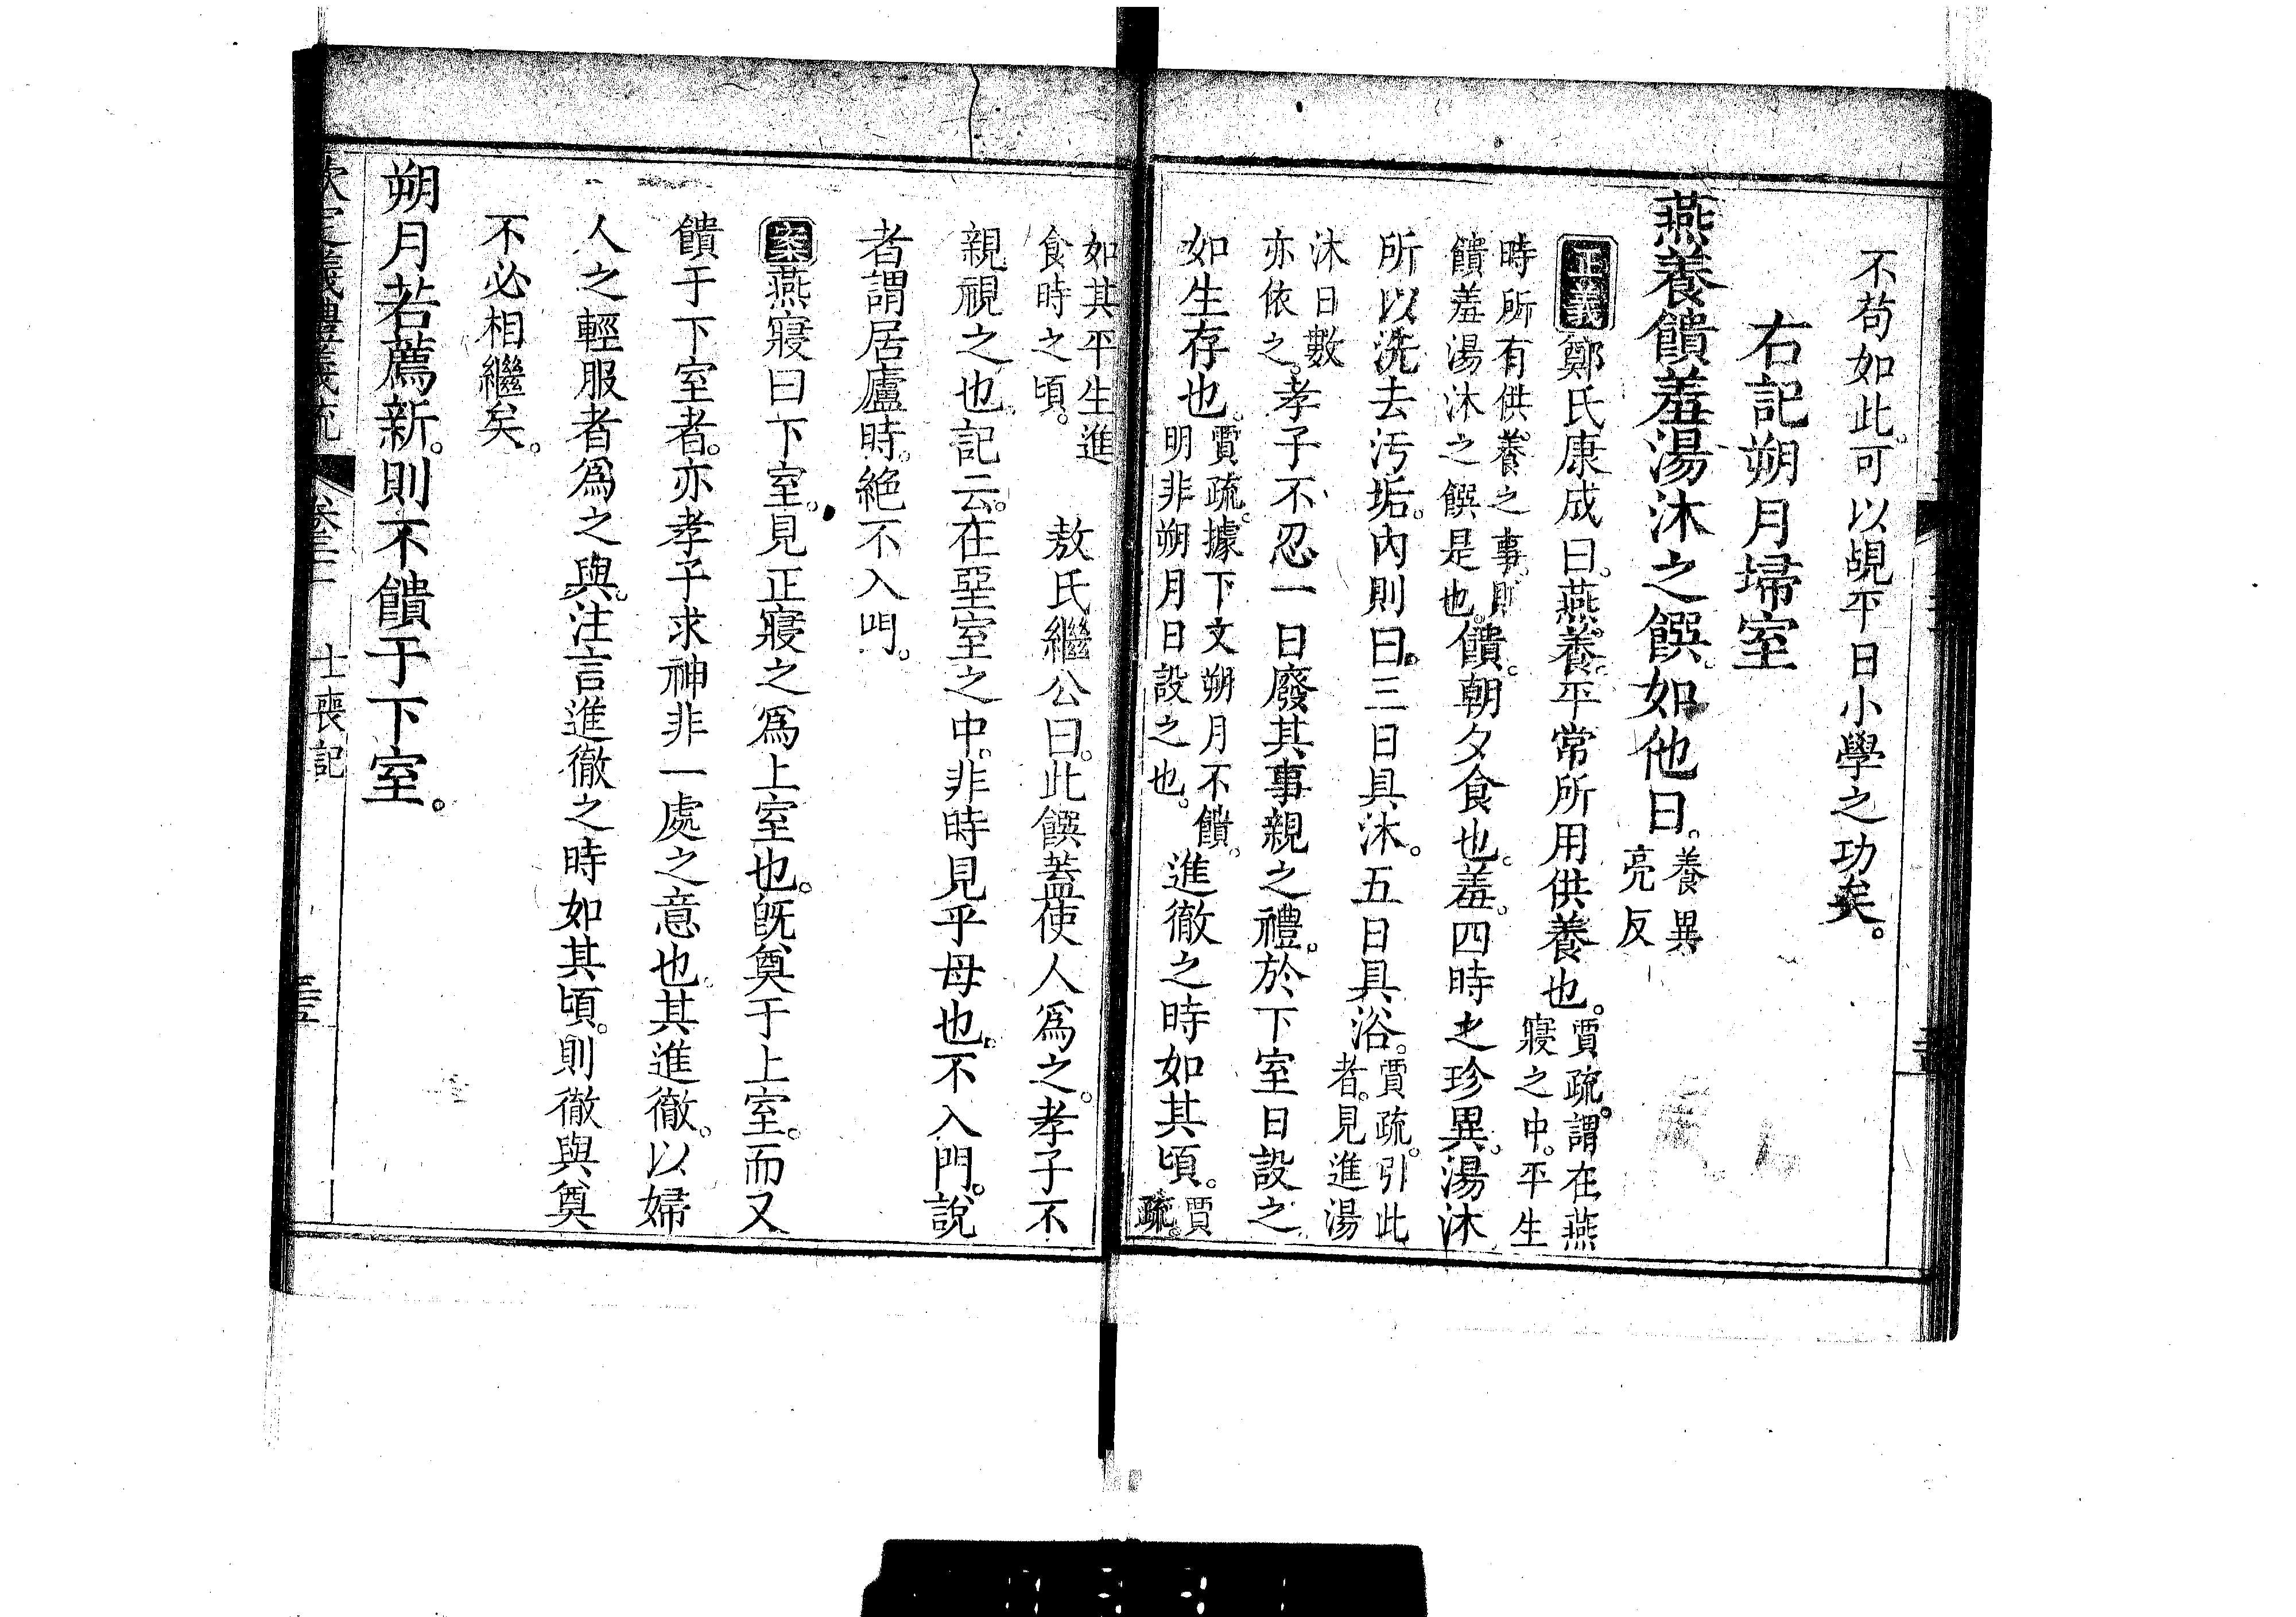 不苟如此。可以覘平日小學之功矣。
右記朔月埽室
燕養饋羞湯沐之饌。如他日。養異
亮反
正義鄭氏康成曰。燕養。平常所用供養也。賈疏。謂在燕
寢之中。平生
時所有供養之事。則
饋羞湯沐之饌是也。饋。朝夕食也。羞。四時之珍異。湯沐
所以洗去汚垢。內則曰。三日具沐。五日具浴。賈疏。引此
者。見進湯
沐日數
亦依之。孝子不忍一日廢其事親之禮。於下室日設之
如生存也。賈疏。據下文朔月不饋。
明非朔月日設之也。進徹之時如其頃。賈
疏。
如其平生進
食時之頃。敖氏繼公曰。此饌蓋使人爲之。孝子不
親視之也。記云。在堊室之中。非時見乎母也。不入門。說
者謂居廬時。絶不入門。
案燕寢曰下室。見正寢之爲上室也。旣奠于上室。而又
饋于下室者。亦孝子求神非一處之意也。其進徹。以婦
人之輕服者爲之與。注言進徹之時如其頃。則徹與奠
不必相繼矣。
朔月若薦新。則不饋于下室。
欽定儀禮義疏 卷三 士喪記